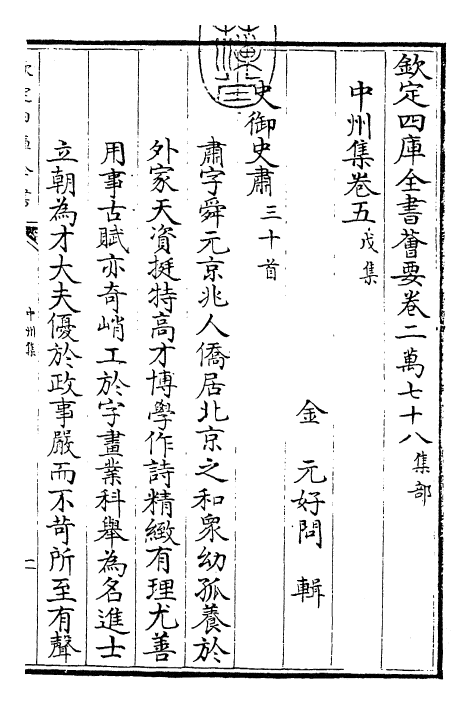 欽定四庫全書薈要卷二萬七十八集部
中州集卷五戊集
金 元好問 輯
史御史肅三十首
肅字舜元京兆人僑居北京之和衆幼孤養於
外家天資挺特高才博學作詩精緻有理尤善
用事古賦亦奇峭工於字畫業科舉為名進士
立朝為才大夫優於政事嚴而不苛所至有聲
中州集